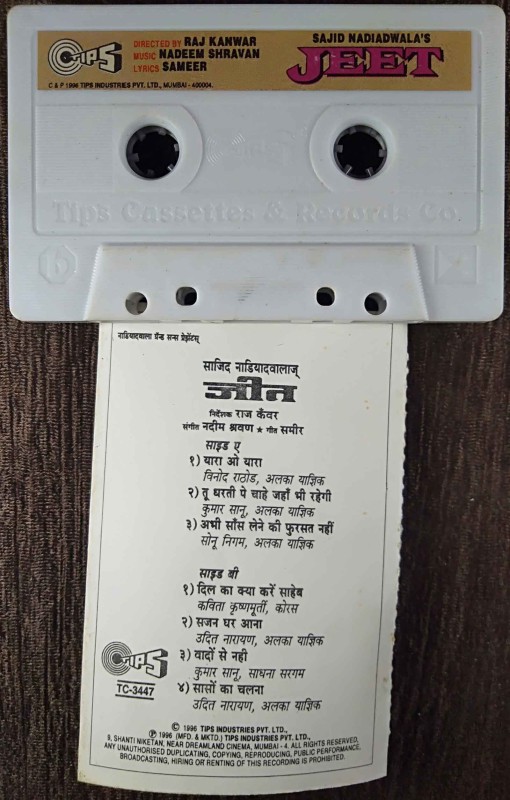 TIPS
DIRECTED BY RAJ KANWAR
MUSIC NADEEM SHRAVAN
LYRICS SAMEER
SAJID NADIADWALA'S
JEET
C & P 1996 TIPS INDUSTRIES PVT. LTD., MUMBAI - 400004.
Tips Cassettes & Records Co.
b
नाडियादवाला ग्रॅन्ड सनस प्रेझेंटस्
साजिद नाडियादवालाज्
जीत
निर्देशक राज कँवर
संगीत नदीम श्रवण ★ गीत समीर
साइड ए
१) यारा ओ यारा
विनोद राठोड, अलका याज्ञिक
२) तू धरती पे चाहे जहाँ भी रहेगी
कुमार सानू, अलका याज्ञिक
३) अभी साँस लेने की फुरसत नहीं
सोनू निगम, अलका याज्ञिक
साइड बी
१) दिल का क्या करें साहेब
कविता कृष्णमूर्ती, कोरस
२) सजन घर आना
उदित नारायण, अलका याज्ञिक
३) वादों से नही
कुमार सानू, साधना सरगम
४) सासों का चलना
उदित नारायण, अलका याज्ञिक
TIPS
TC-3447
© 1996 TIPS INDUSTRIES PVT. LTD.,
℗ 1996 (MFD. & MKTD.) TIPS INDUSTRIES PVT. LTD.,
9, SHANTI NIKETAN, NEAR DREAMLAND CINEMA, MUMBAI - 4. ALL RIGHTS RESERVED,
ANY UNAUTHORISED DUPLICATING, COPYING, REPRODUCING, PUBLIC PERFORMANCE,
BROADCASTING, HIRING OR RENTING OF THIS RECORDING IS PROHIBITED.